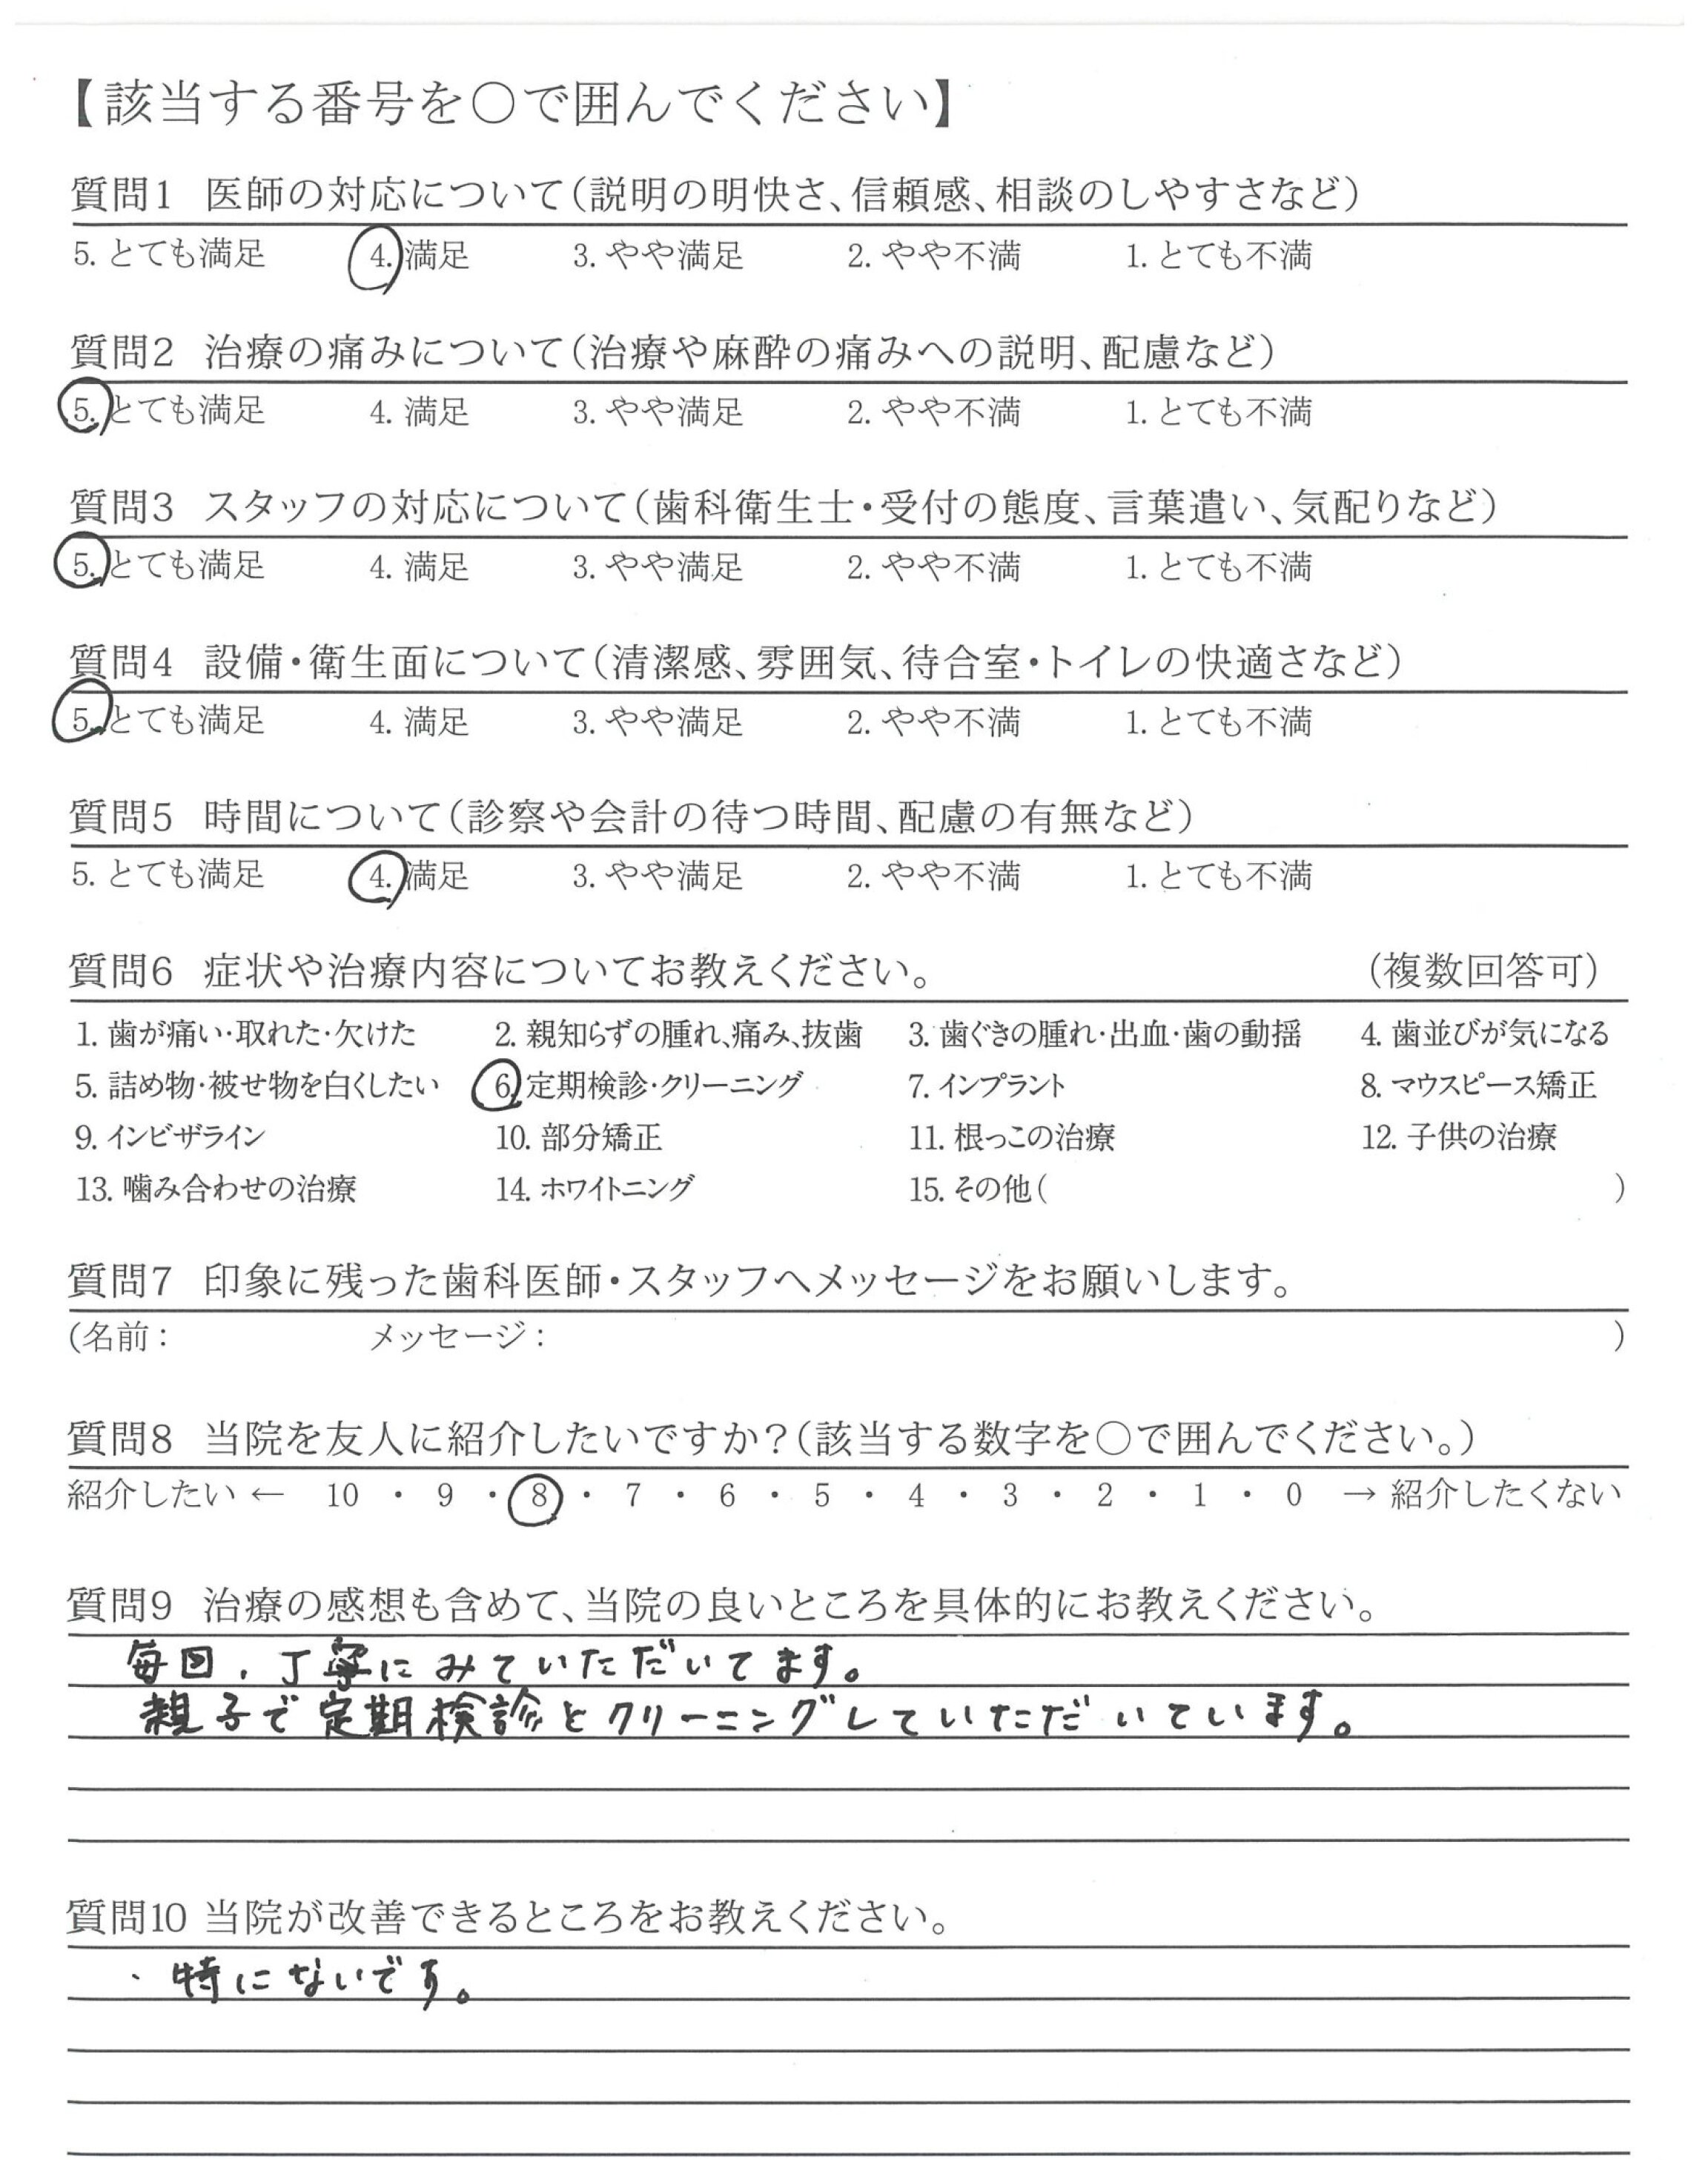 【該当する番号を〇で囲んでください】
質問1 医師の対応について(説明の明快さ、信頼感、相談のしやすさなど)
5. とても満足 4. 満足 3. やや満足 2. やや不満 1. とても不満
質問2 治療の痛みについて(治療や麻酔の痛みへの説明、配慮など)
5. とても満足 4. 満足 3. やや満足 2. やや不満 1. とても不満
質問3 スタッフの対応について(歯科衛生士・受付の態度、言葉遣い、気配りなど)
5. とても満足 4. 満足 3. やや満足 2. やや不満 1. とても不満
質問4 設備・衛生面について(清潔感、雰囲気、待合室・トイレの快適さなど)
5. とても満足 4. 満足 3. やや満足 2. やや不満 1. とても不満
質問5 時間について(診察や会計の待つ時間、配慮の有無など)
5. とても満足 4. 満足 3. やや満足 2. やや不満 1. とても不満
質問6 症状や治療内容についてお教えください。 (複数回答可)
1. 歯が痛い・取れた・欠けた 2. 親知らずの腫れ、痛み、抜歯 3. 歯ぐきの腫れ・出血・歯の動揺 4. 歯並びが気になる
5. 詰め物・被せ物を白くしたい 6. 定期検診・クリーニング 7. インプラント 8. マウスピース矯正
9. インビザライン 10. 部分矯正 11. 根っこの治療 12. 子供の治療
13. 噛み合わせの治療 14. ホワイトニング 15. その他( )
質問7 印象に残った歯科医師・スタッフへメッセージをお願いします。
(名前: メッセージ: )
質問8 当院を友人に紹介したいですか?(該当する数字を〇で囲んでください。)
紹介したい ← 10 ・ 9 ・ 8 ・ 7 ・ 6 ・ 5 ・ 4 ・ 3 ・ 2 ・ 1 ・ 0 → 紹介したくない
質問9 治療の感想も含めて、当院の良いところを具体的にお教えください。
毎回、丁寧にみていただいてます。
親子で定期検診とクリーニングしていただいています。
質問10 当院が改善できるところをお教えください。
・特にないです。